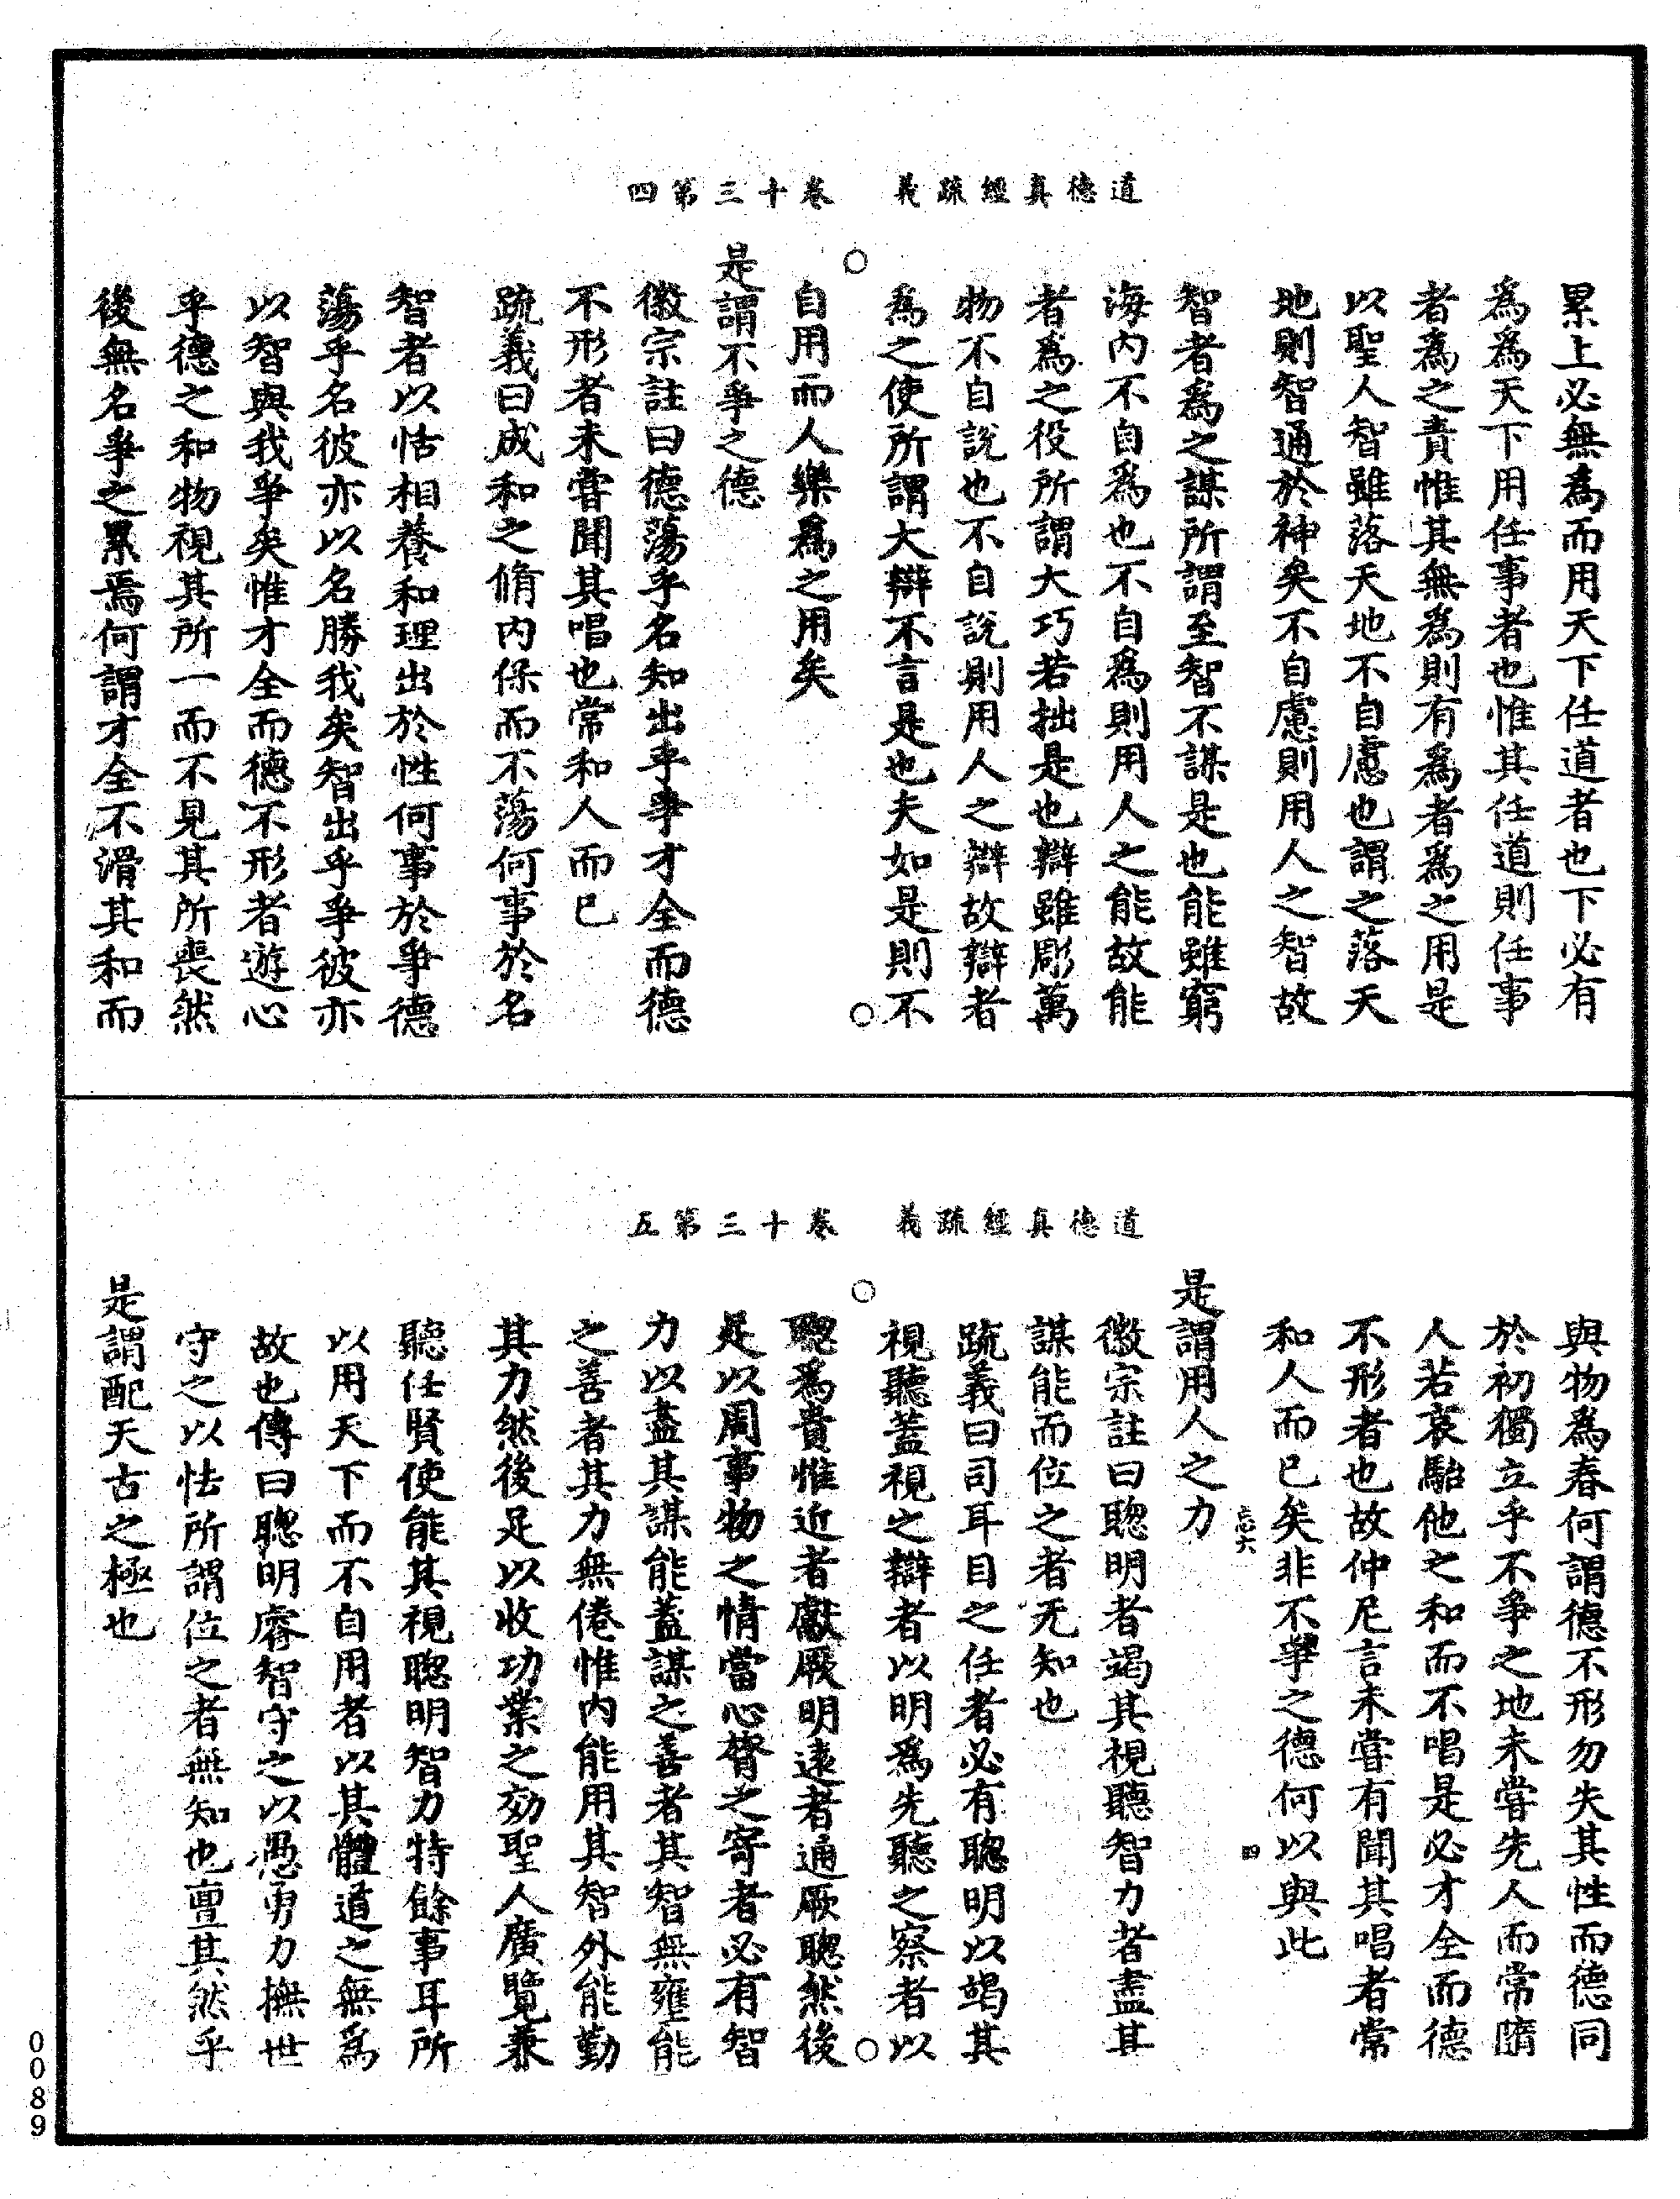 道德真經疏義　卷十三第四
累上必無為而用天下任道者也下必有
為為天下用任事者也惟其任道則任事
者為之責惟其無為則有為者為之用是
以聖人智雖落天地不自慮也謂之落天
地則智通於神矣不自慮則用人之智故
智者為之謀所謂至智不謀是也能雖窮
海内不自為也不自為則用人之能故能
者為之役所謂大巧若拙是也辯雖彫萬
物不自說也不自說則用人之辯故辯者
為之使所謂大辯不言是也夫如是則不
自用而人樂為之用矣
是謂不爭之德
徽宗註曰德蕩乎名知出乎爭才全而德
不形者未嘗聞其唱也常和人而已
疏義曰成和之脩内保而不蕩何事於名
智者以恬相養和理出於性何事於爭德
蕩乎名彼亦以名勝我矣智出乎爭彼亦
以智與我爭矣惟才全而德不形者遊心
乎德之和物視其所一而不見其所喪然
後無名爭之累焉何謂才全不滑其和而
道德真經疏義　卷十三第五
與物為春何謂德不形勿失其性而德同
於初獨立乎不爭之地未嘗先人而常隨
人若哀駘他之和而不唱是必才全而德
不形者也故仲尼言未嘗有聞其唱者常
和人而已矣非不爭之德何以與此
忘六　四
是謂用人之力
徽宗註曰聦明者竭其視聽智力者盡其
謀能而位之者无知也
疏義曰司耳目之任者必有聦明以竭其
視聽蓋視之辯者以明為先聽之察者以
聦為貴惟近者獻厥明遠者通厥聦然後
足以周事物之情當心膂之寄者必有智
力以盡其謀能蓋謀之善者其智無壅能
之善者其力無倦惟内能用其智外能勤
其力然後足以收功業之効聖人廣覽兼
聽任賢使能其視聦明智力特餘事耳所
以用天下而不自用者以其體道之無為
故也傳曰聦明睿智守之以愚勇力撫世
守之以怯所謂位之者無知也亶其然乎
是謂配天古之極也
0089